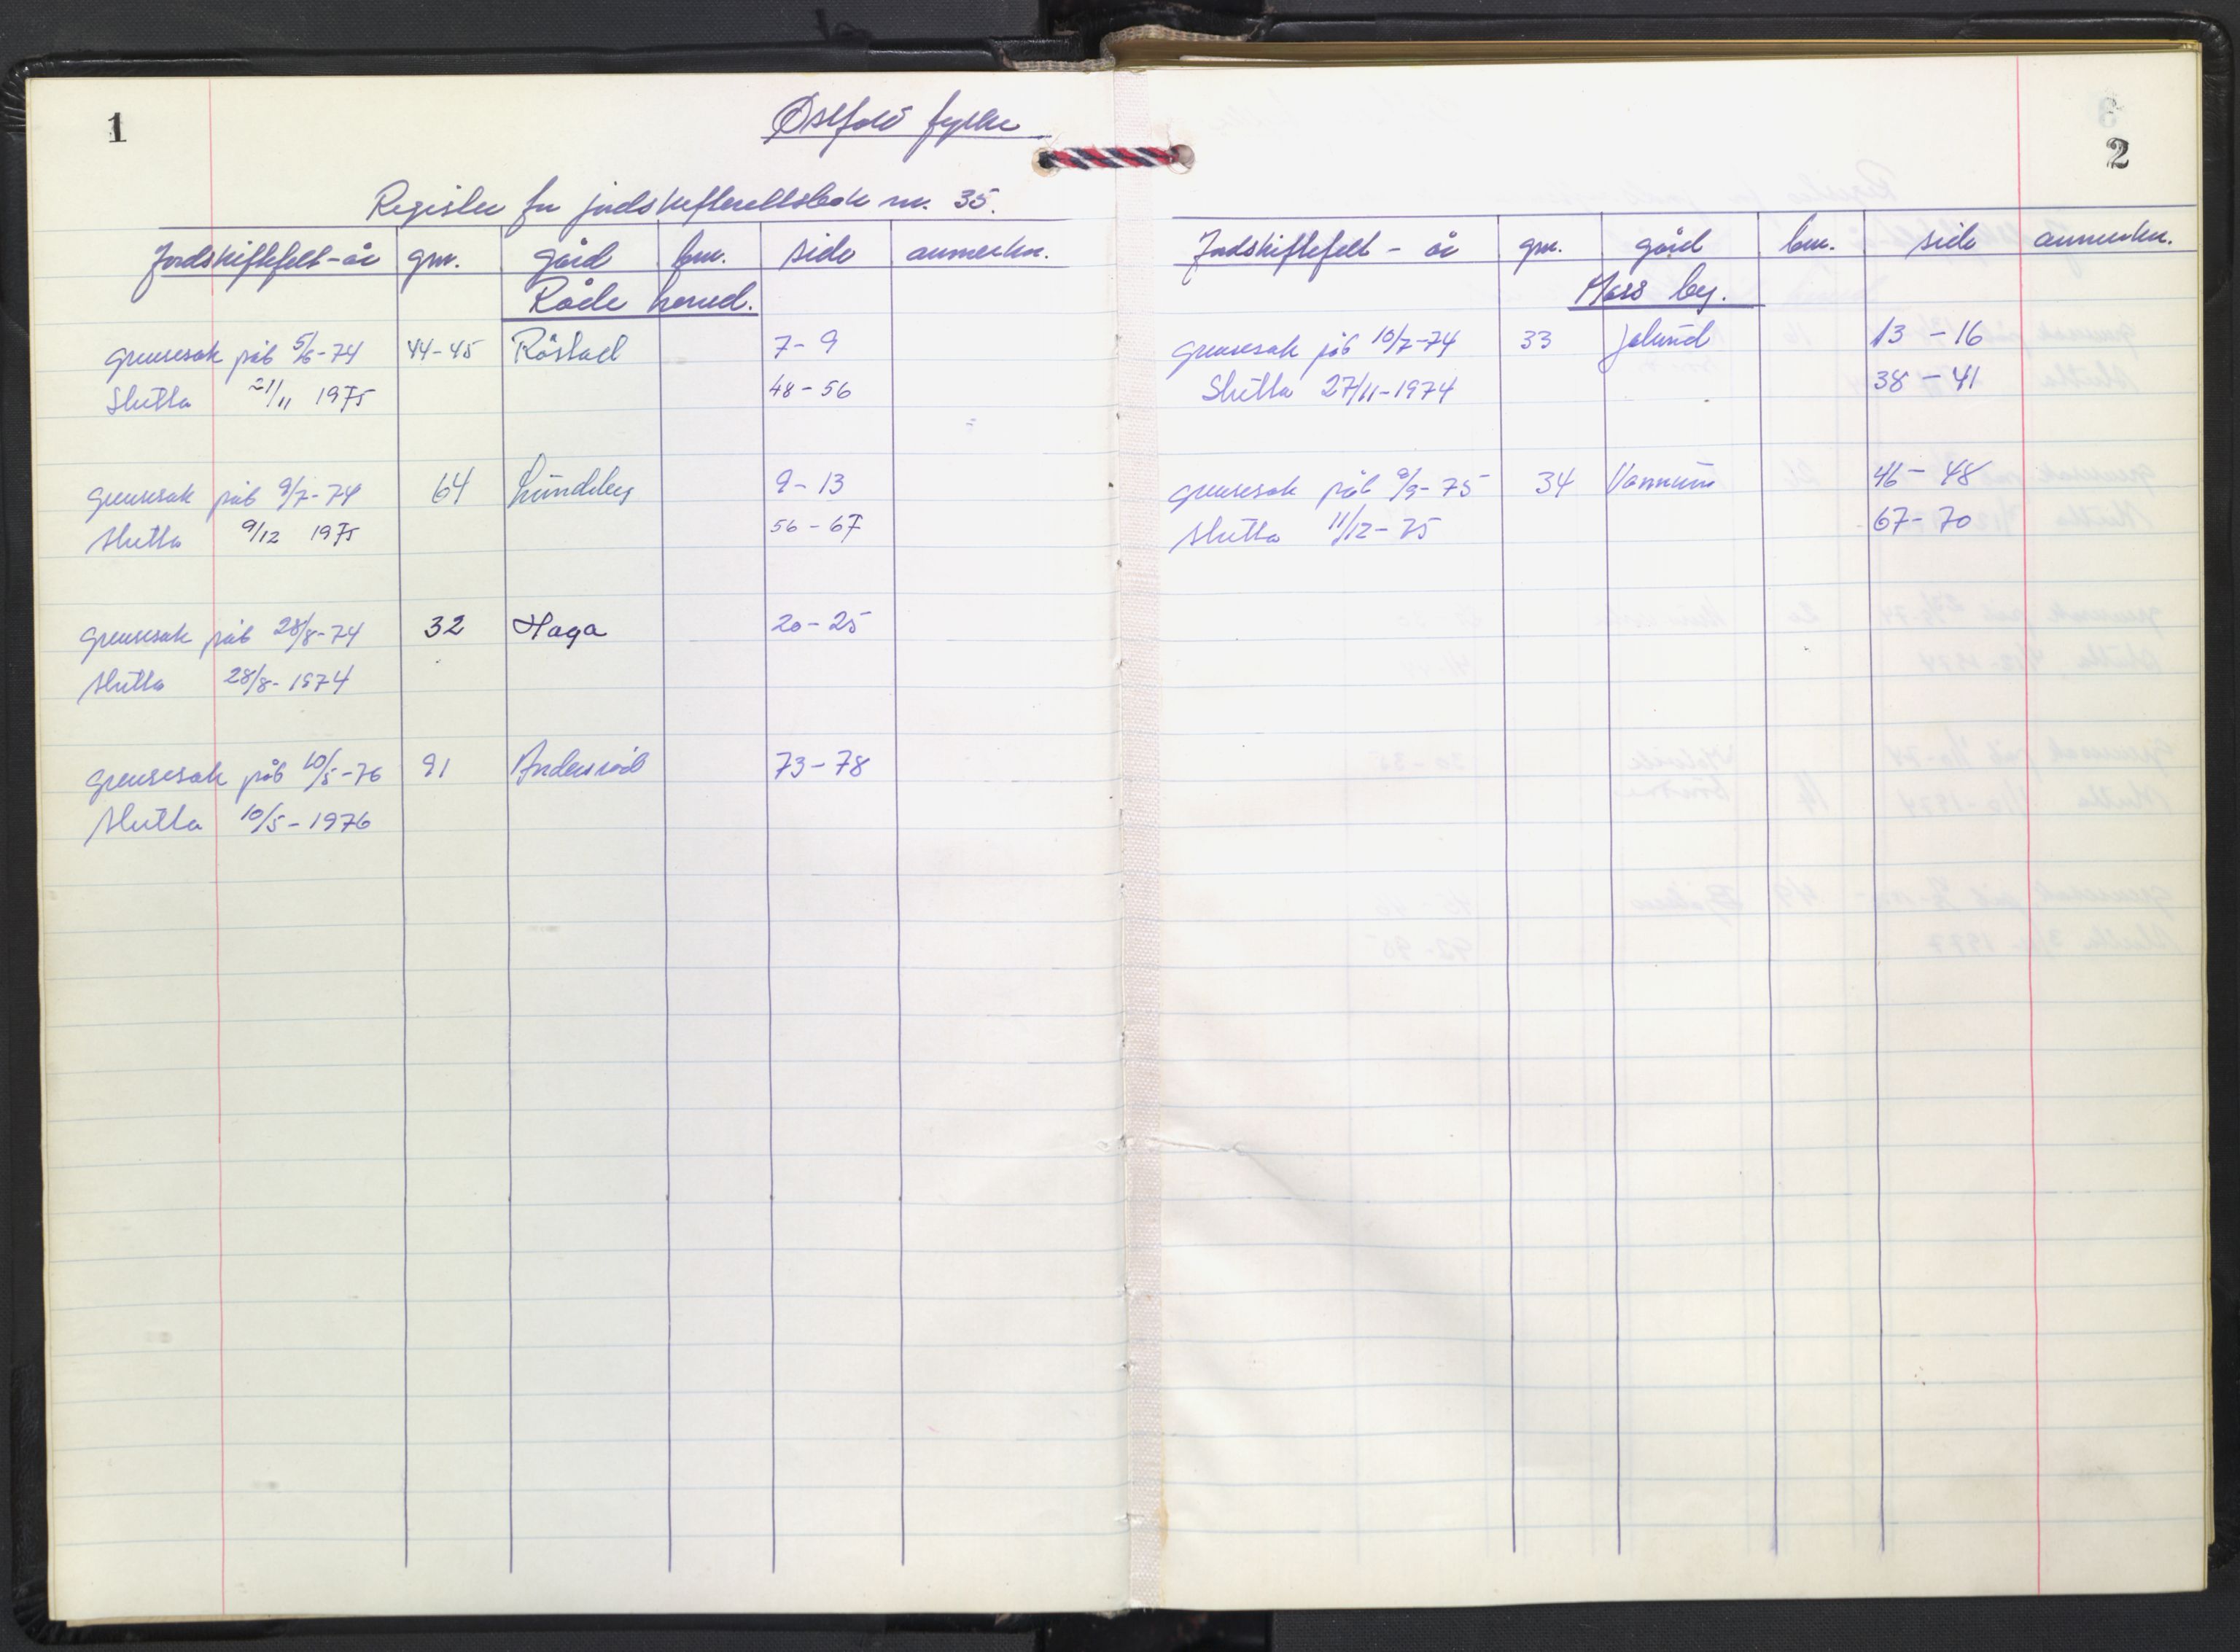 1
Østfold fylke
Register for jordskifterettsbok nr. 35.
Jordskiftefelt - år gnr. gård bnr. side anmerkn.
Råde herred.
Grensesak påb 5/6-74 44-45 Råstad 7-9
Slutta 21/11 1975 48-56
Grensesak påb 9/7-74 64 Lundeby 9-13
Slutta 9/12 1975 56-67
Grensesak påb 28/8-74 32 Haga 20-25
Slutta 28/8-1974
Grensesak påb 10/5-76 91 Andersrød 73-78
Slutta 10/5-1976
2
Jordskiftefelt - år gnr. gård bnr. side anmerkn.
Moss by.
Grensesak påb 10/7-74 33 Jelund 13-16
Slutta 27/11-1974 38-41
Grensesak påb 9/9-75 34 Vannum 46-48
Slutta 11/12-75 67-70